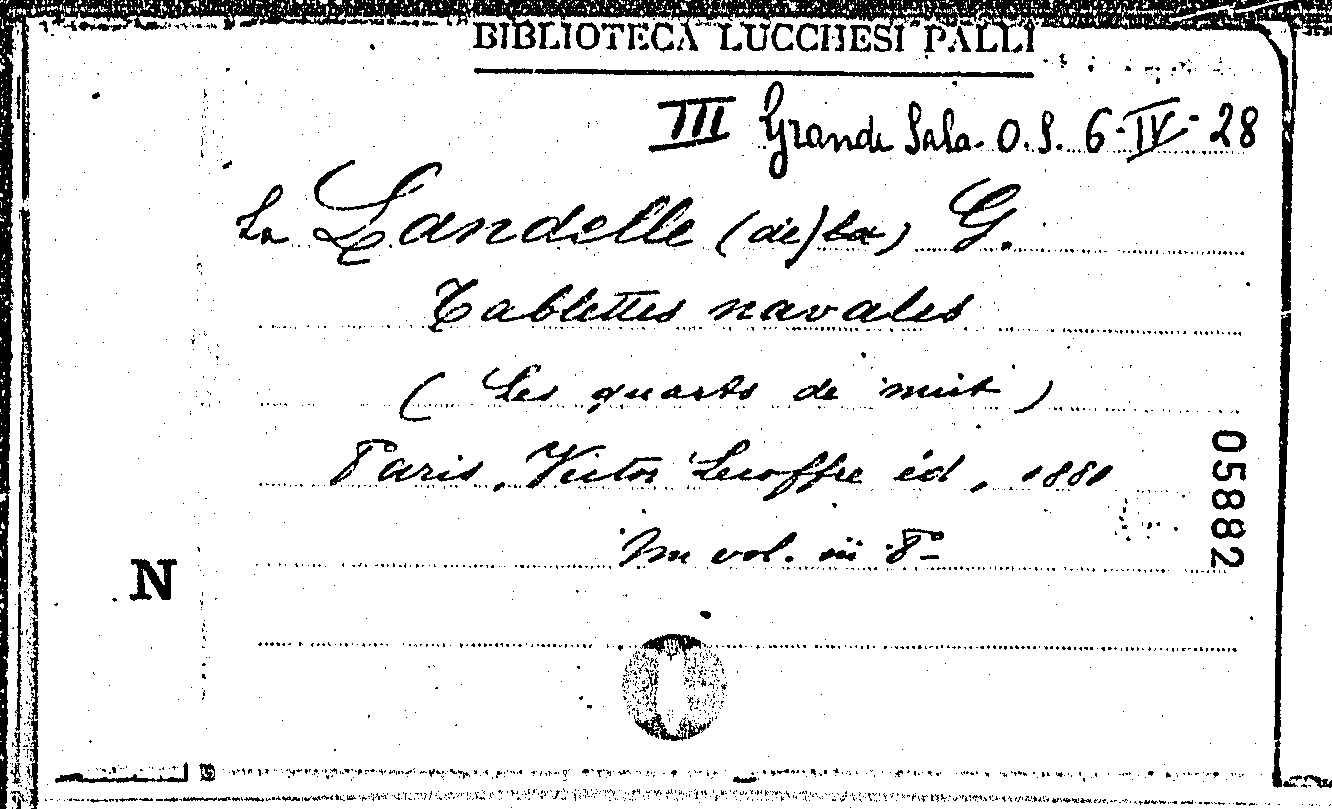 BIBLIOTECA LUCCHESI PALLI
III Grande Sala. O. S. 6-IV-28
La Landelle (de) la) G.
Tablettes navales
( Les quarts de nuit )
Paris, Victor Lecoffre éd, 1881
Un vol. in 8-
05882
N